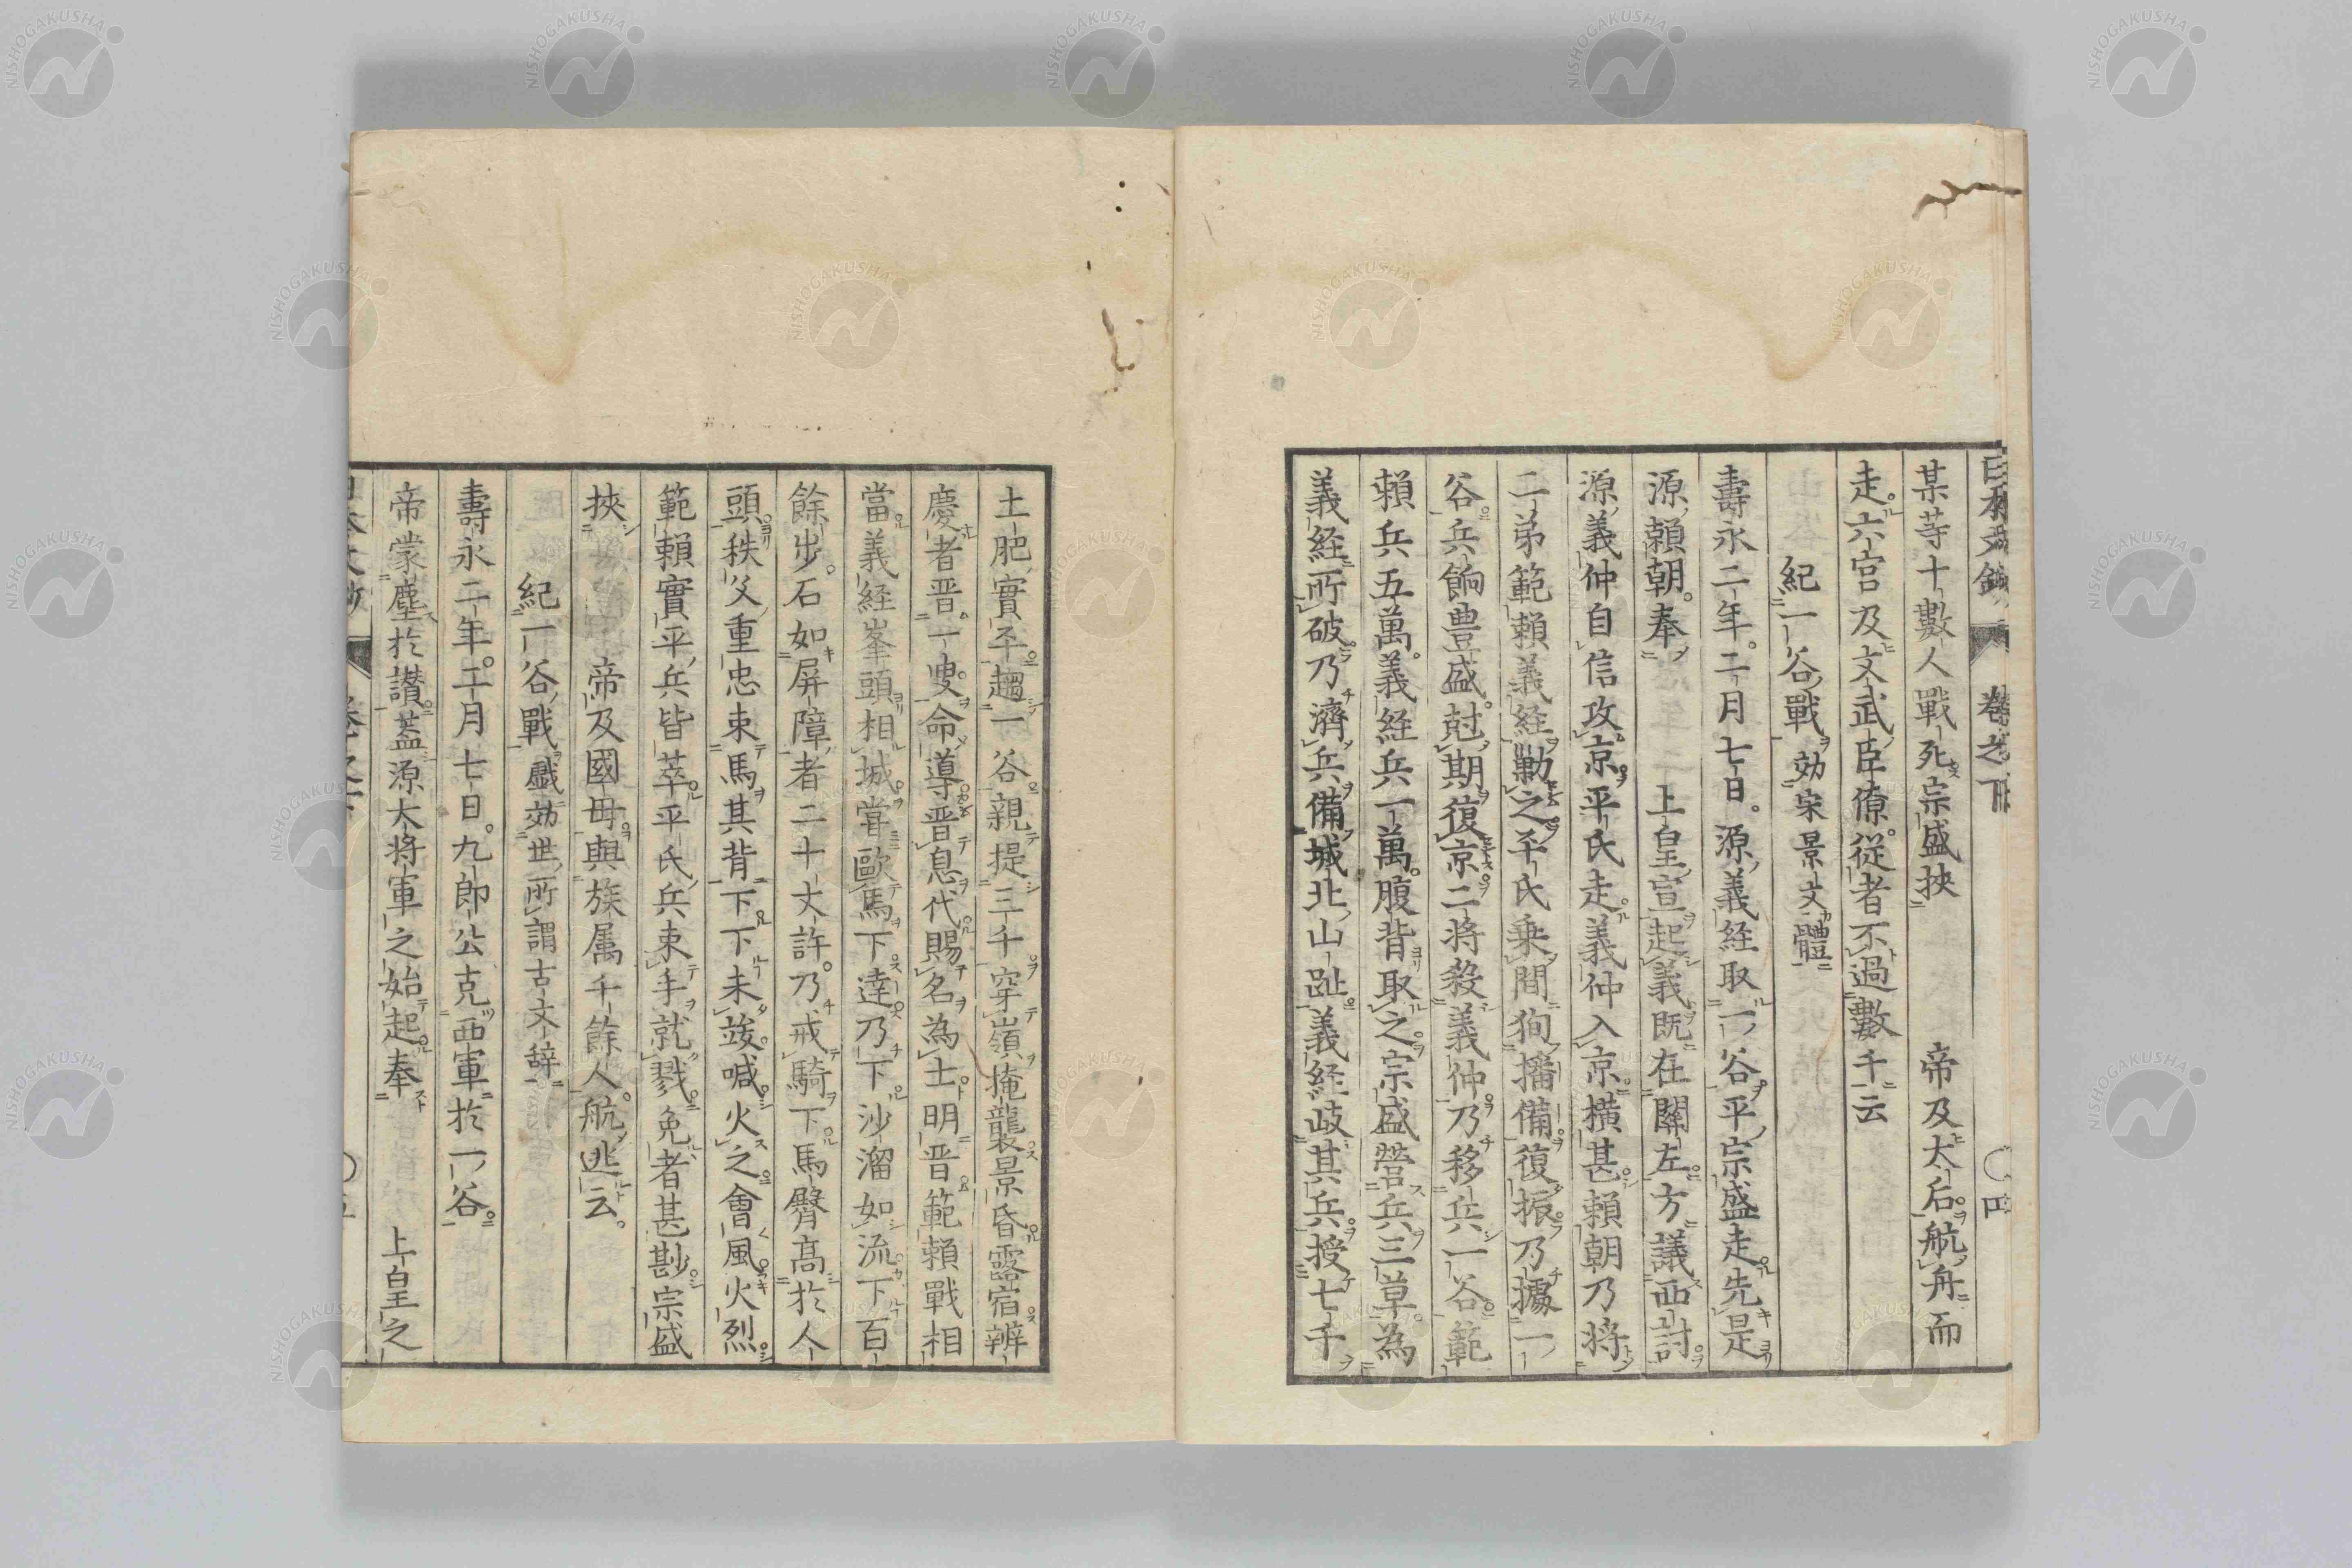 日本文鈔 卷之下 〇四
某等十數人戰死宗盛挾 帝及大后航舟而
走六宮及文武臣僚從者不過數千云
紀一谷戰効宋景文體
壽永二年二月七日源義経取一谷平宗盛走先是
源頼朝奉 上皇宣起義既在關左方議西討
源義仲自信攻京平氏走義仲入京横甚頼朝乃将
二弟範頼義経勦之平氏乗間狥播備復振乃據一
谷兵餉豊盛尅期復京二将殺義仲乃移兵一谷範
頼兵五萬義経兵一萬腹背取之宗盛營兵三草為
義経所破乃濟兵備城北山趾義経歧其兵授七千
土肥實平趨一谷親提三千穿嶺掩襲景昏露宿辨
慶者晋一叟命導晋息代賜名為士明晋範頼戰相
當義経峯頭相城嘗歐馬下達乃下沙溜如流下百
餘步石如屏障者二十丈許乃戒騎下馬臀高於人
頭秩父重忠束馬其背下下未竣喊火之會風火烈
範頼實平兵皆萃平氏兵束手就戮免者甚尠宗盛
挾 帝及國母與族属千餘人航逃云
紀一谷戰戲効世所謂古文辞
壽永二年二月七日九郎公克西軍於一谷 上皇之
帝蒙塵於讃葢源大将軍之始起奉